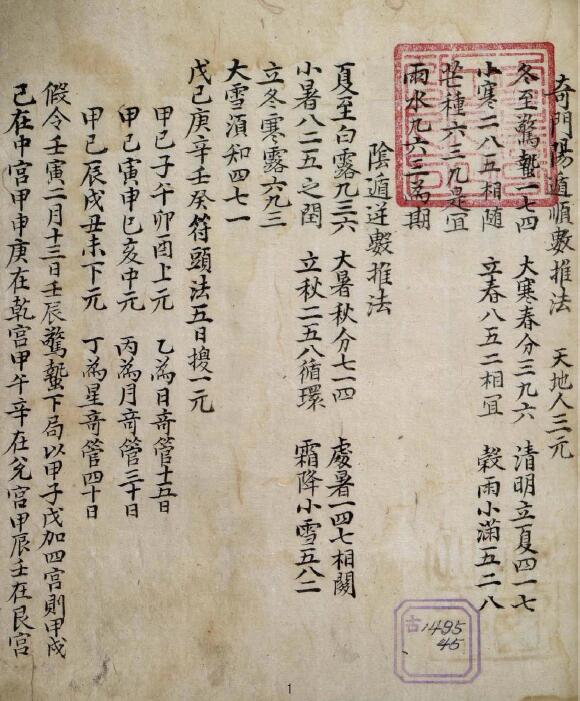 奇門陽遁順數推法　天地人三元
冬至驚蟄一七四　大寒春分三九六　清明立夏四一七
小寒二八五相隨　立春八五二相宜　穀雨小滿五二八
芒種六三九是宜
雨水九六三為期
陰遁逆數推法
夏至白露九三六　大暑秋分七一四　處暑一四七相關
小暑八二五之間　立秋二五八循環　霜降小雪五八二
立冬寒露六九三
大雪須知四七一
戊己庚辛壬癸符頭法五日換一元
甲己子午卯酉上元　乙為日奇管十五日
甲己寅申巳亥中元　丙為月奇管三十日
甲己辰戌丑未下元　丁為星奇管四十日
假令壬寅二月十三日壬辰驚蟄下局以甲子戊加四宮則甲戌
己在中宮甲申庚在乾宮甲午辛在兌宮甲辰壬在艮宮
古1495
45
1